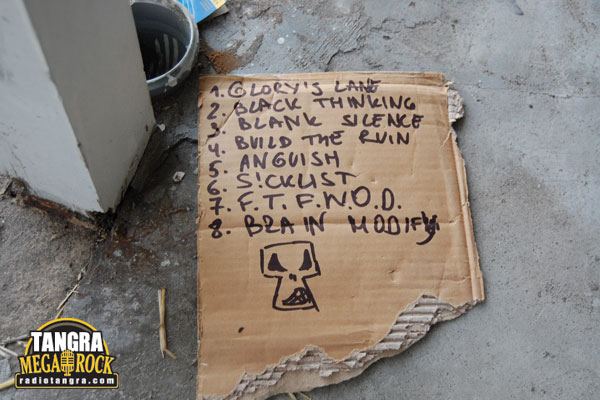 1. GLORY'S LANE
2. BLACK THINKING
3. BLANK SILENCE
4. BUILD THE RUIN
5. ANGUISH
6. S!CKLIST
7. F.T.F.W.O.D.
8. BRAIN MODIFY
TANGRA
MEGA ROCK
radiotangra.com